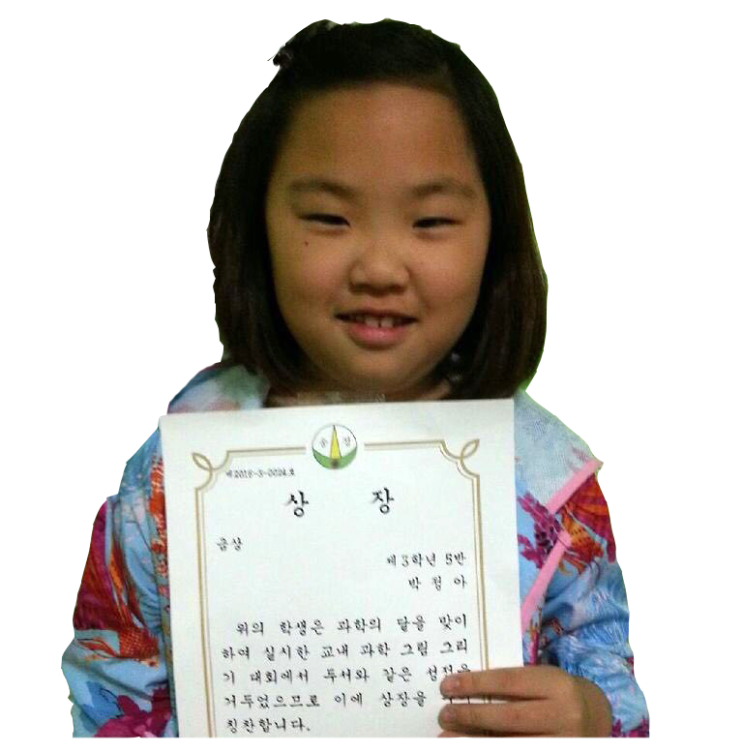 제2018-3-0024호
상 장
금상
제3학년 5반
박 정 아
위의 학생은 과학의 달을 맞이
하여 실시한 교내 과학 그림 그리
기 대회에서 두서와 같은 성적을
거두었으므로 이에 상장을
칭찬합니다.